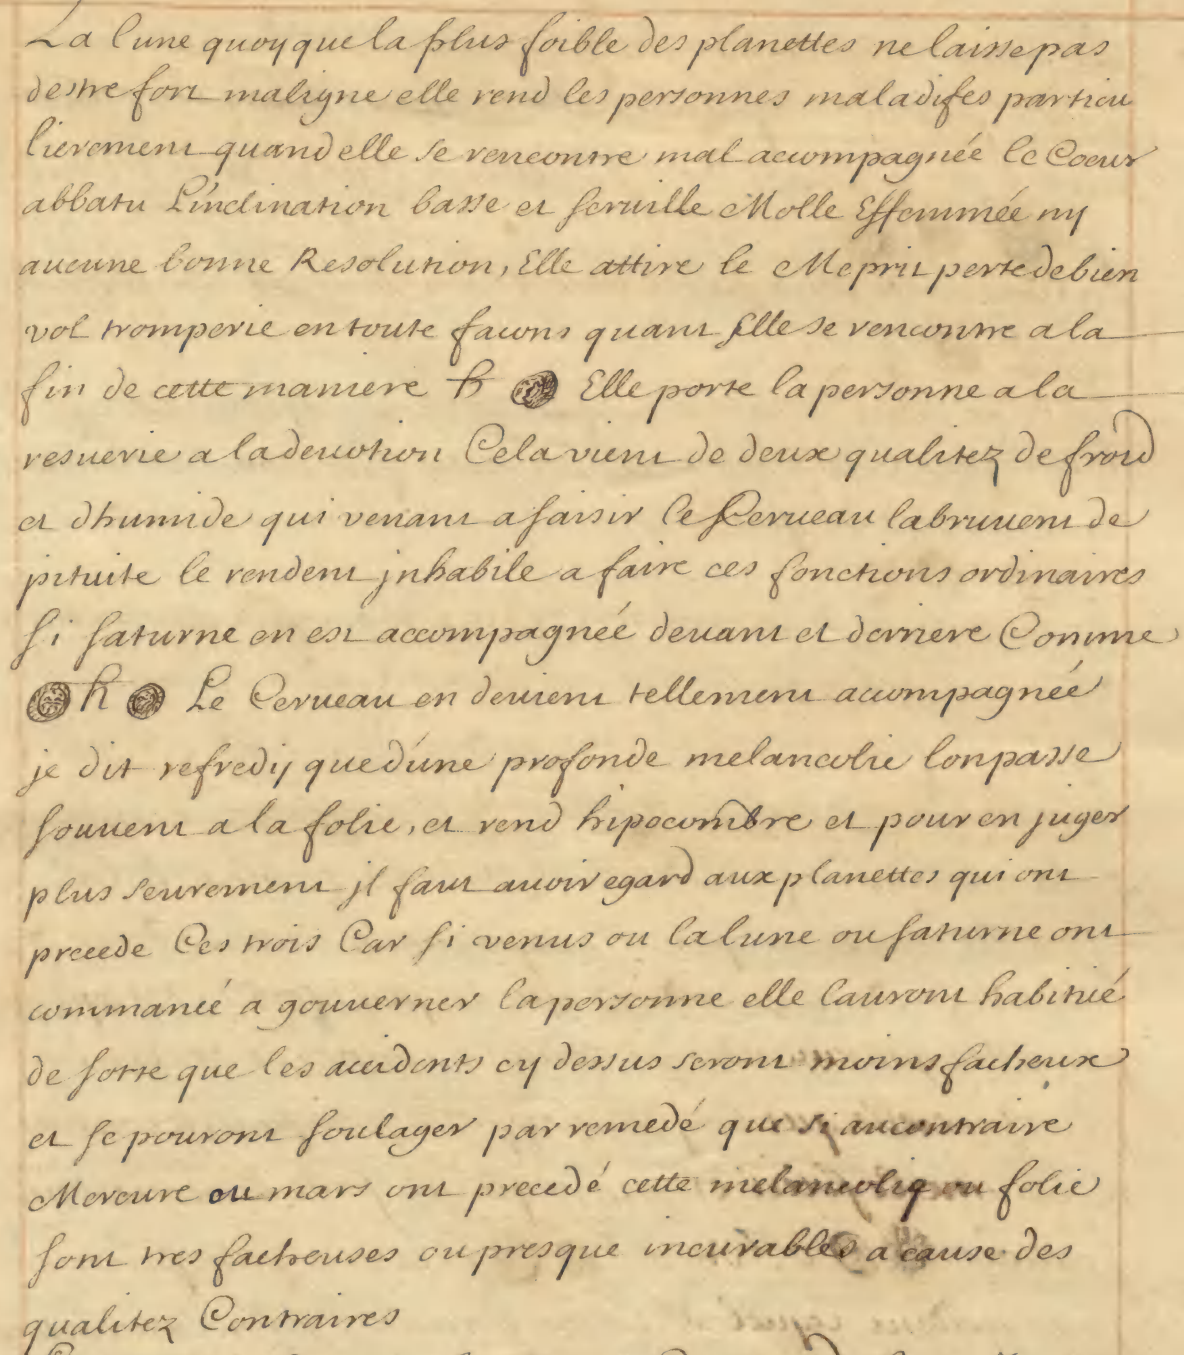 La lune quoyque la plus foible des planettes ne laisse pas
destre fort maligne elle rend les personnes maladifes particu
lierement quand elle se rencontre mal accompagnée le Coeur
abbatu L'inclination basse et seruille Molle Effeminée ny
aucune bonne Resolution, Elle attire le Mepris perte de bien
vol tromperie en toute facons quant Elle se rencontre a la
fin de cette maniere ♄ Elle porte la personne a la
resuerie a la deuotion Cela vient de deux qualitez de froid
et dhumide qui venant a saisir le Cerueau labruuent de
pituite le rendent jnhabile a faire ces fonctions ordinaires
si saturne en est accompagnée deuant et derriere Comme
♄ Le Cerueau en deuient tellement accompagnée
je dit refredij que d'une profonde melancolie lon passe
souuent a la folie, et rend hipocombre et pour en juger
plus seurement jl faut auoir egard aux planettes qui ont
precede Ces trois Car si venus ou la lune ou saturne ont
commancé a gouuerner la personne elle lauront habitué
de sorte que les accidents cy dessus seront moins facheux
et se pouront soulager par remedé que si au contraire
Mercure ou mars ont precedé cette melancoliq ou folie
sont tres facheuses ou presque incurables a cause des
qualitez Contraires